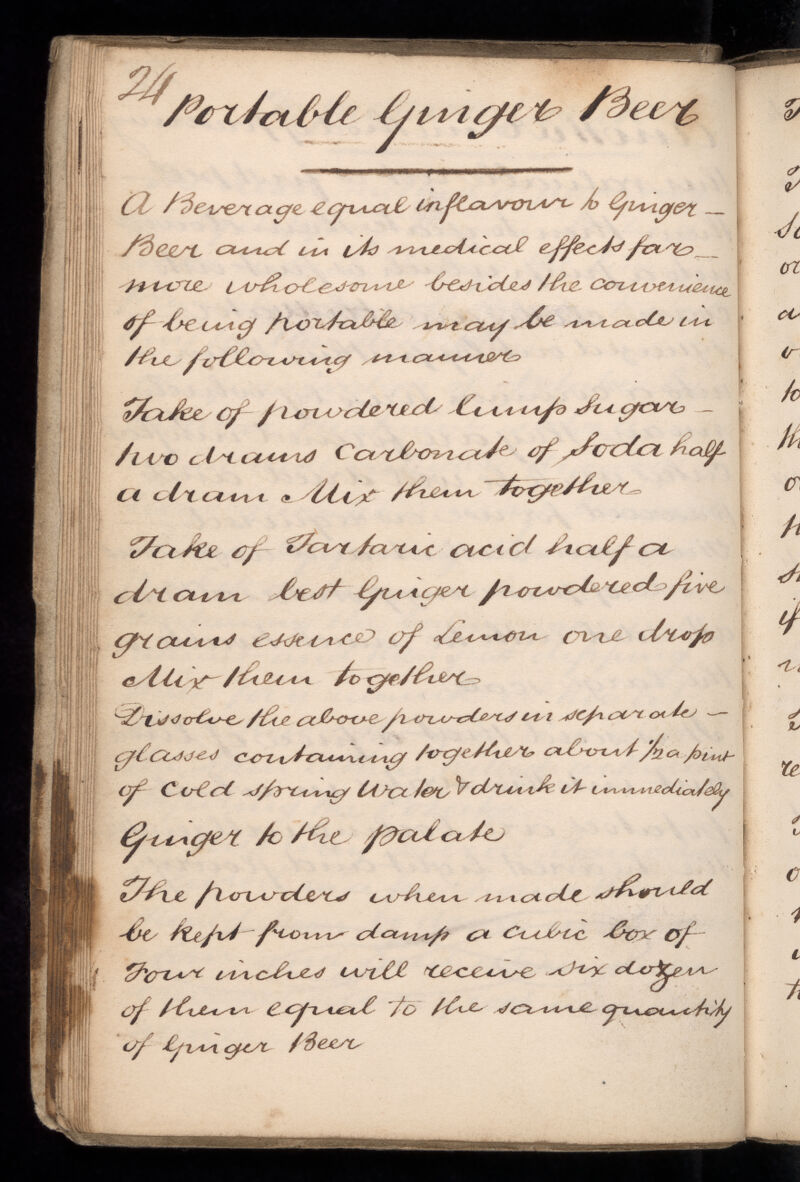 24
Portable Ginger Beer
A Beverage equal in flavour to Ginger –
Beer and in its medical effects far –
more wholesome besides the convenience
of being portable may be made in
the following manner
Take of powdered lump Sugar –
two drams Carbonate of Soda half
a dram Mix them together
Take of Tartaric acid half a
dram best Ginger powdered five
grains essence of Lemon one drop
Mix them together
Dissolve the above powders in separate –
glasses containing together about 1/2 a pint
of Cold spring Water & drink it immediately
Ginger to the palate
The powders when made should
be kept from damp a cubic box of
Four inches will receive six dozen
of them equal to the same quantity
of Ginger Beer